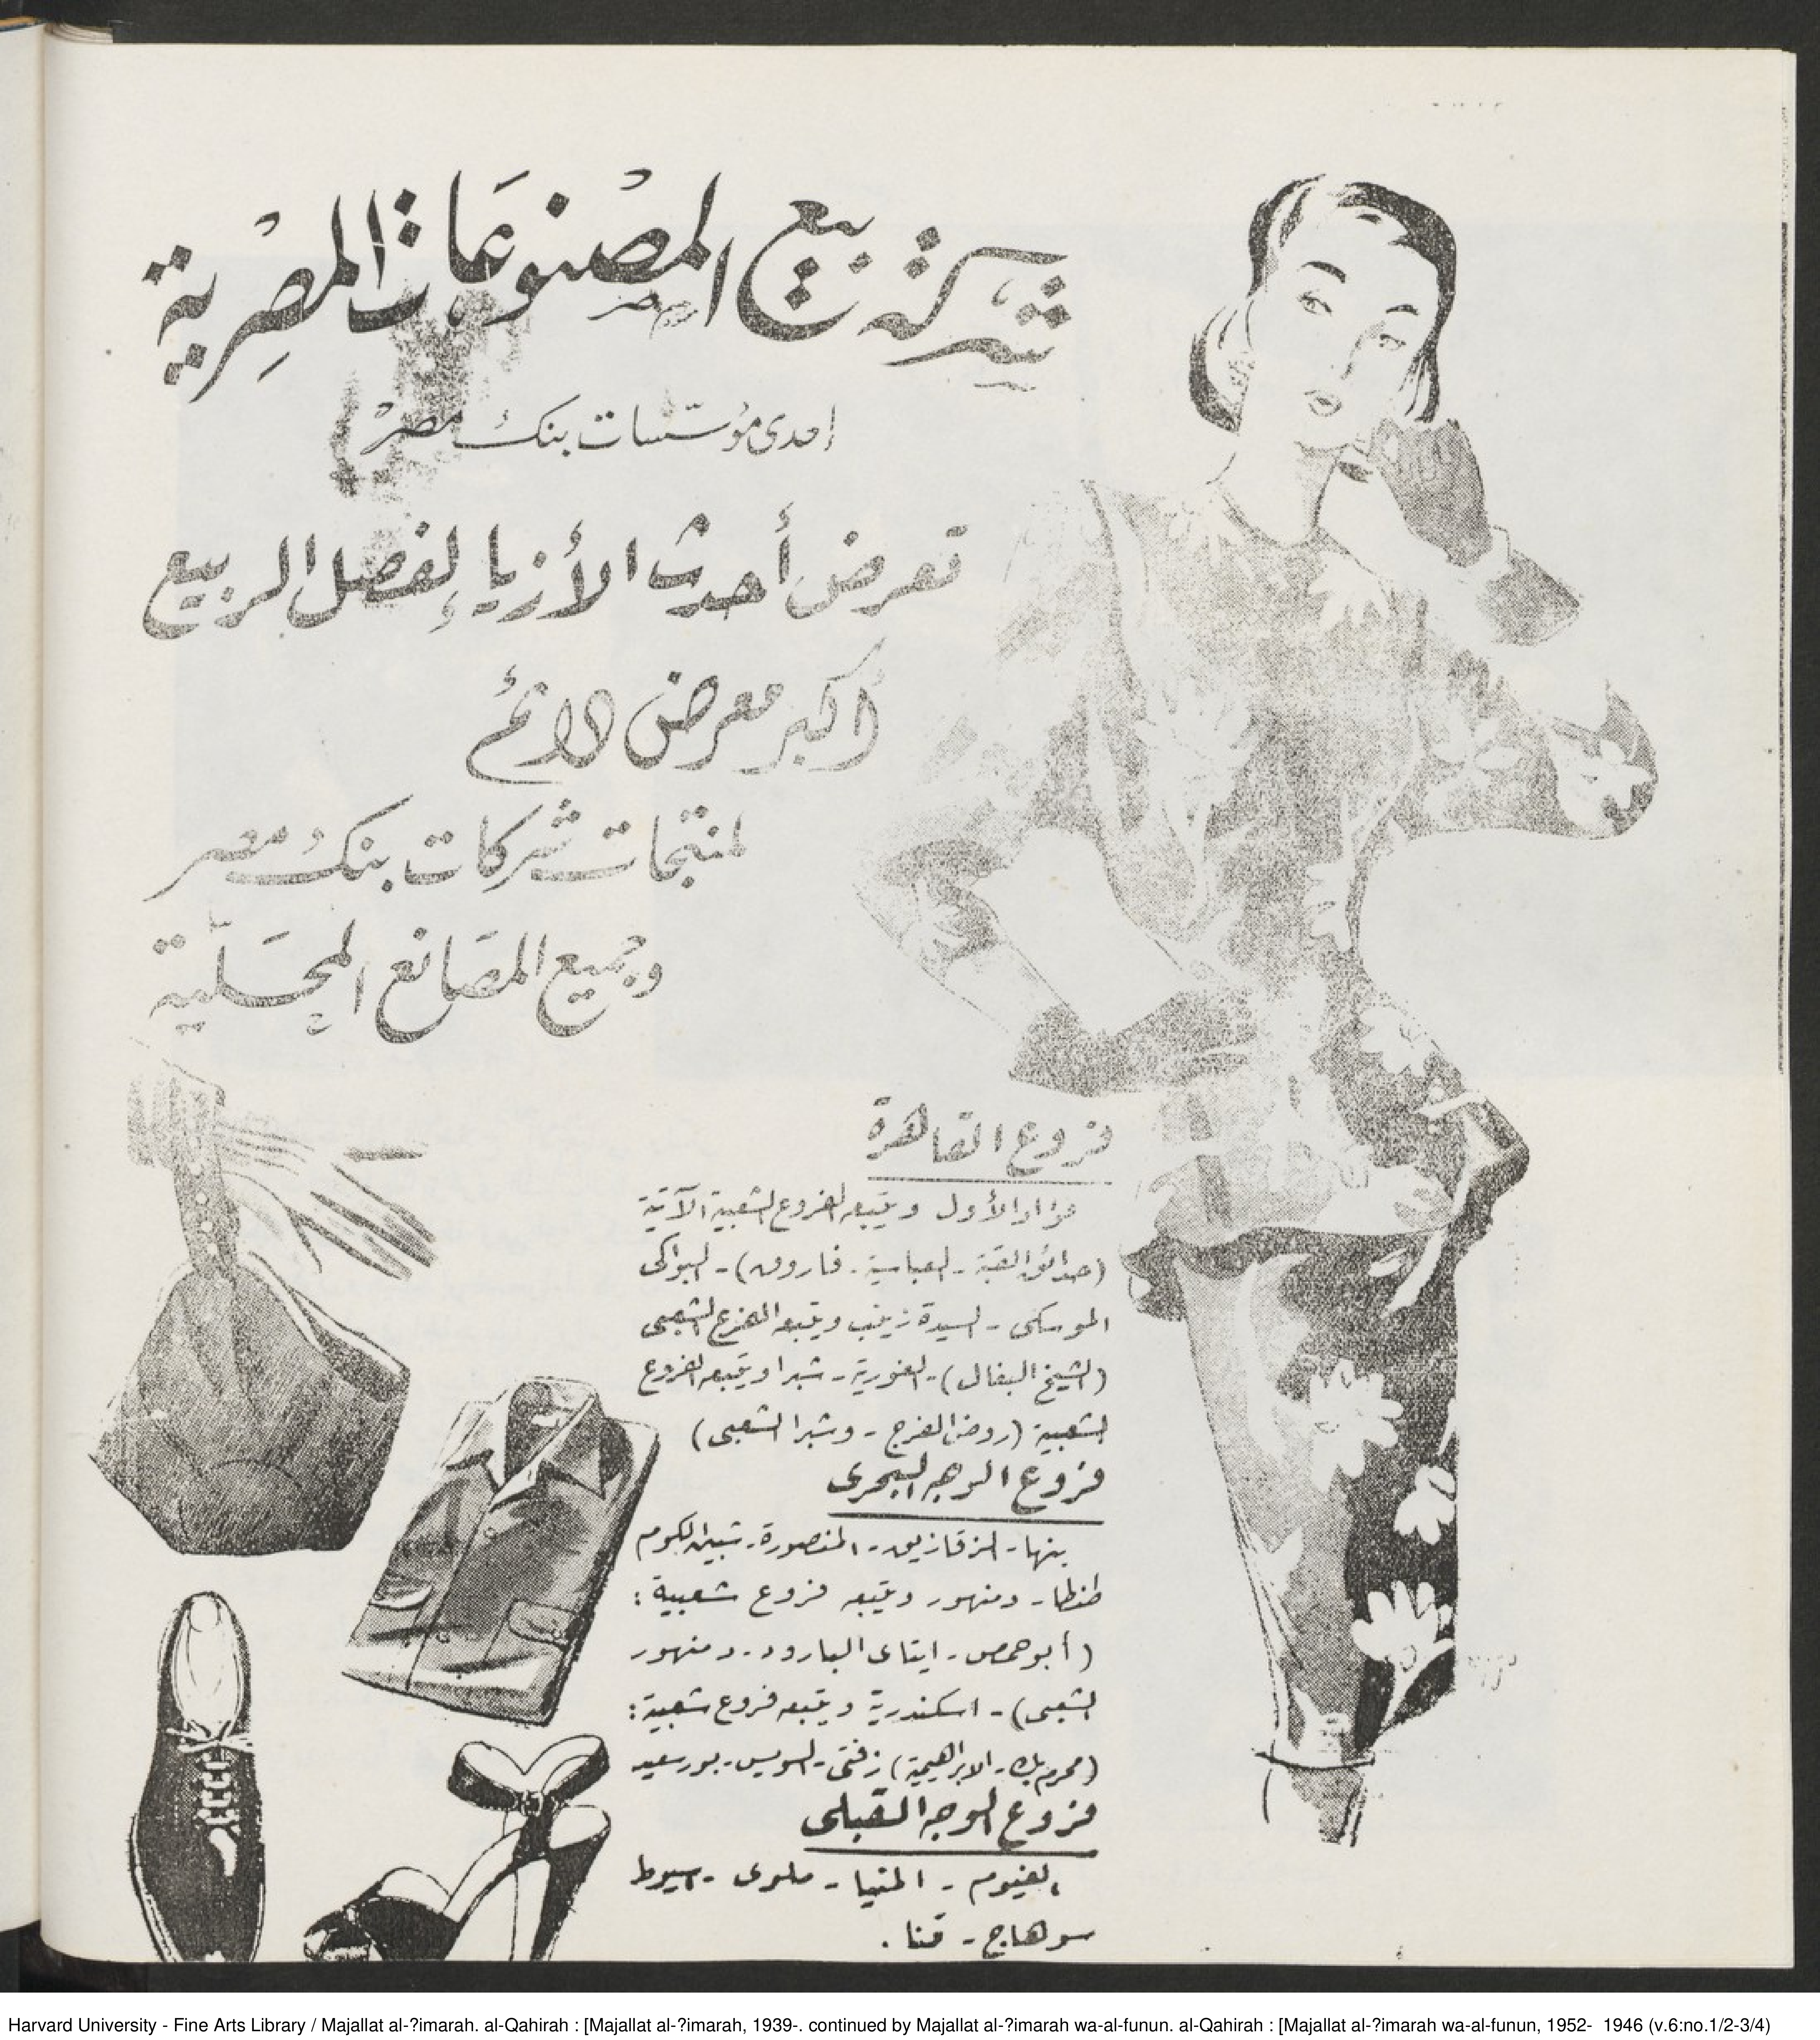 شركة بيع المصنوعات المصرية
إحدى مؤسسات بنك مصر
تعرض أحدث الأزياء لفصل الربيع
أكبر معرض دائم
لمنتجات شركات بنك مصر
وجميع المصانع المحلية
فروع القاهرة
فؤاد الأول ويتبعه الفروع الشعبية الآتية
(حدائق القبة - العباسية - فاروق) - البواكى
الموسكى - السيدة زينب ويتبعه الفرع الشعبى
(الشيخ البغال) - الغورية - شبرا ويتبعه الفروع
الشعبية (روض الفرج - وشبرا الشعبى)
فروع الوجه البحرى
بنها - الزقازيق - المنصورة - شبين الكوم
طنطا - دمنهور ويتبعه فروع شعبية :
(أبو حمص - ايتاى البارود - دمنهور
الشعبى) - اسكندرية ويتبعه فروع شعبية :
(محرم بك - الابراهيمية) زفتى - السويس - بورسعيد
فروع الوجه القبلى
الفيوم - المنيا - ملوى - اسيوط
سوهاج - قنا .
Harvard University - Fine Arts Library / Majallat al-?imarah. al-Qahirah : [Majallat al-?imarah, 1939-. continued by Majallat al-?imarah wa-al-funun. al-Qahirah : [Majallat al-?imarah wa-al-funun, 1952- 1946 (v.6:no.1/2-3/4)